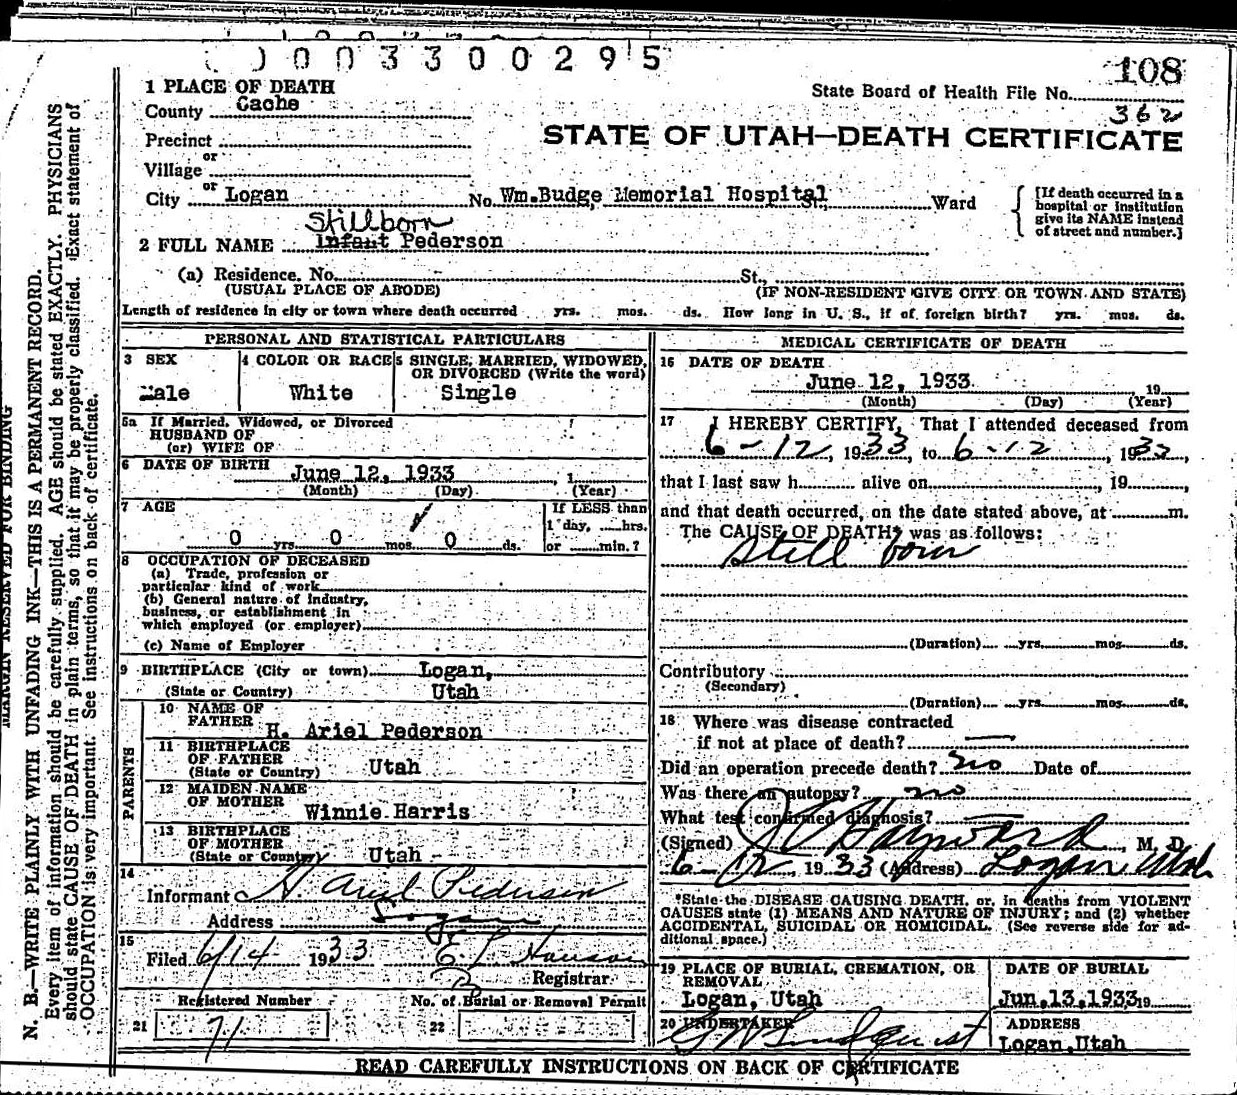 0 0 3 3 0 0 2 9 5
108
1 PLACE OF DEATH
State Board of Health File No.
County Cache
362
STATE OF UTAH—DEATH CERTIFICATE
Precinct
or
Village
or
City Logan No. Wm. Budge Memorial Hospital St., Ward
[If death occurred in a
hospital or institution
give its NAME instead
of street and number.]
Stillborn
2 FULL NAME Infant Pederson
(a) Residence. No. St.,
(USUAL PLACE OF ABODE) (IF NON-RESIDENT GIVE CITY OR TOWN AND STATE)
Length of residence in city or town where death occurred yrs. mos. ds. How long in U. S., if of foreign birth? yrs. mos. ds.
PERSONAL AND STATISTICAL PARTICULARS
3 SEX
Male
4 COLOR OR RACE
White
5 SINGLE, MARRIED, WIDOWED,
OR DIVORCED (Write the word)
Single
5a If Married, Widowed, or Divorced
HUSBAND OF
(or) WIFE OF
6 DATE OF BIRTH June 12, 1933 , 1
(Month) (Day) (Year)
7 AGE
0 yrs. 0 mos. 0 ds.
If LESS than
1 day, hrs.
or min.?
8 OCCUPATION OF DECEASED
(a) Trade, profession or
particular kind of work
(b) General nature of industry,
business, or establishment in
which employed (or employer)
(c) Name of Employer
9 BIRTHPLACE (City or town) Logan,
(State or Country) Utah
PARENTS
10 NAME OF
FATHER H. Ariel Pederson
11 BIRTHPLACE
OF FATHER
(State or Country) Utah
12 MAIDEN NAME
OF MOTHER Winnie Harris
13 BIRTHPLACE
OF MOTHER
(State or Country) Utah
14
Informant H. Ariel Pederson
Address Logan
15
Filed 6/14 1933 E L Hanson
Registrar
Registered Number No. of Burial or Removal Permit
21 71 22
MEDICAL CERTIFICATE OF DEATH
16 DATE OF DEATH
June 12, 1933 19
(Month) (Day) (Year)
17 I HEREBY CERTIFY, That I attended deceased from
6-12, 1933, to 6-12, 1933,
that I last saw h alive on , 19 ,
and that death occurred, on the date stated above, at m.
The CAUSE OF DEATH* was as follows:
Still born
(Duration) yrs. mos. ds.
Contributory
(Secondary)
(Duration) yrs. mos. ds.
18 Where was disease contracted
if not at place of death? —
Did an operation precede death? no Date of
Was there an autopsy? no
What test confirmed diagnosis?
(Signed) J C Hayward, M. D.
6-12, 1933 (Address) Logan Utah
*State the DISEASE CAUSING DEATH, or, in deaths from VIOLENT
CAUSES state (1) MEANS AND NATURE OF INJURY; and (2) whether
ACCIDENTAL, SUICIDAL OR HOMICIDAL. (See reverse side for ad-
ditional space.)
19 PLACE OF BURIAL, CREMATION, OR
REMOVAL
Logan, Utah
DATE OF BURIAL
Jun, 13, 1933 19
20 UNDERTAKER
G W Lindquist
ADDRESS
Logan, Utah
READ CAREFULLY INSTRUCTIONS ON BACK OF CERTIFICATE
MARGIN RESERVED FOR BINDING
N. B.—WRITE PLAINLY WITH UNFADING INK—THIS IS A PERMANENT RECORD.
Every item of information should be carefully supplied. AGE should be stated EXACTLY. PHYSICIANS
should state CAUSE OF DEATH in plain terms, so that it may be properly classified. Exact statement of
OCCUPATION is very important. See instructions on back of certificate.